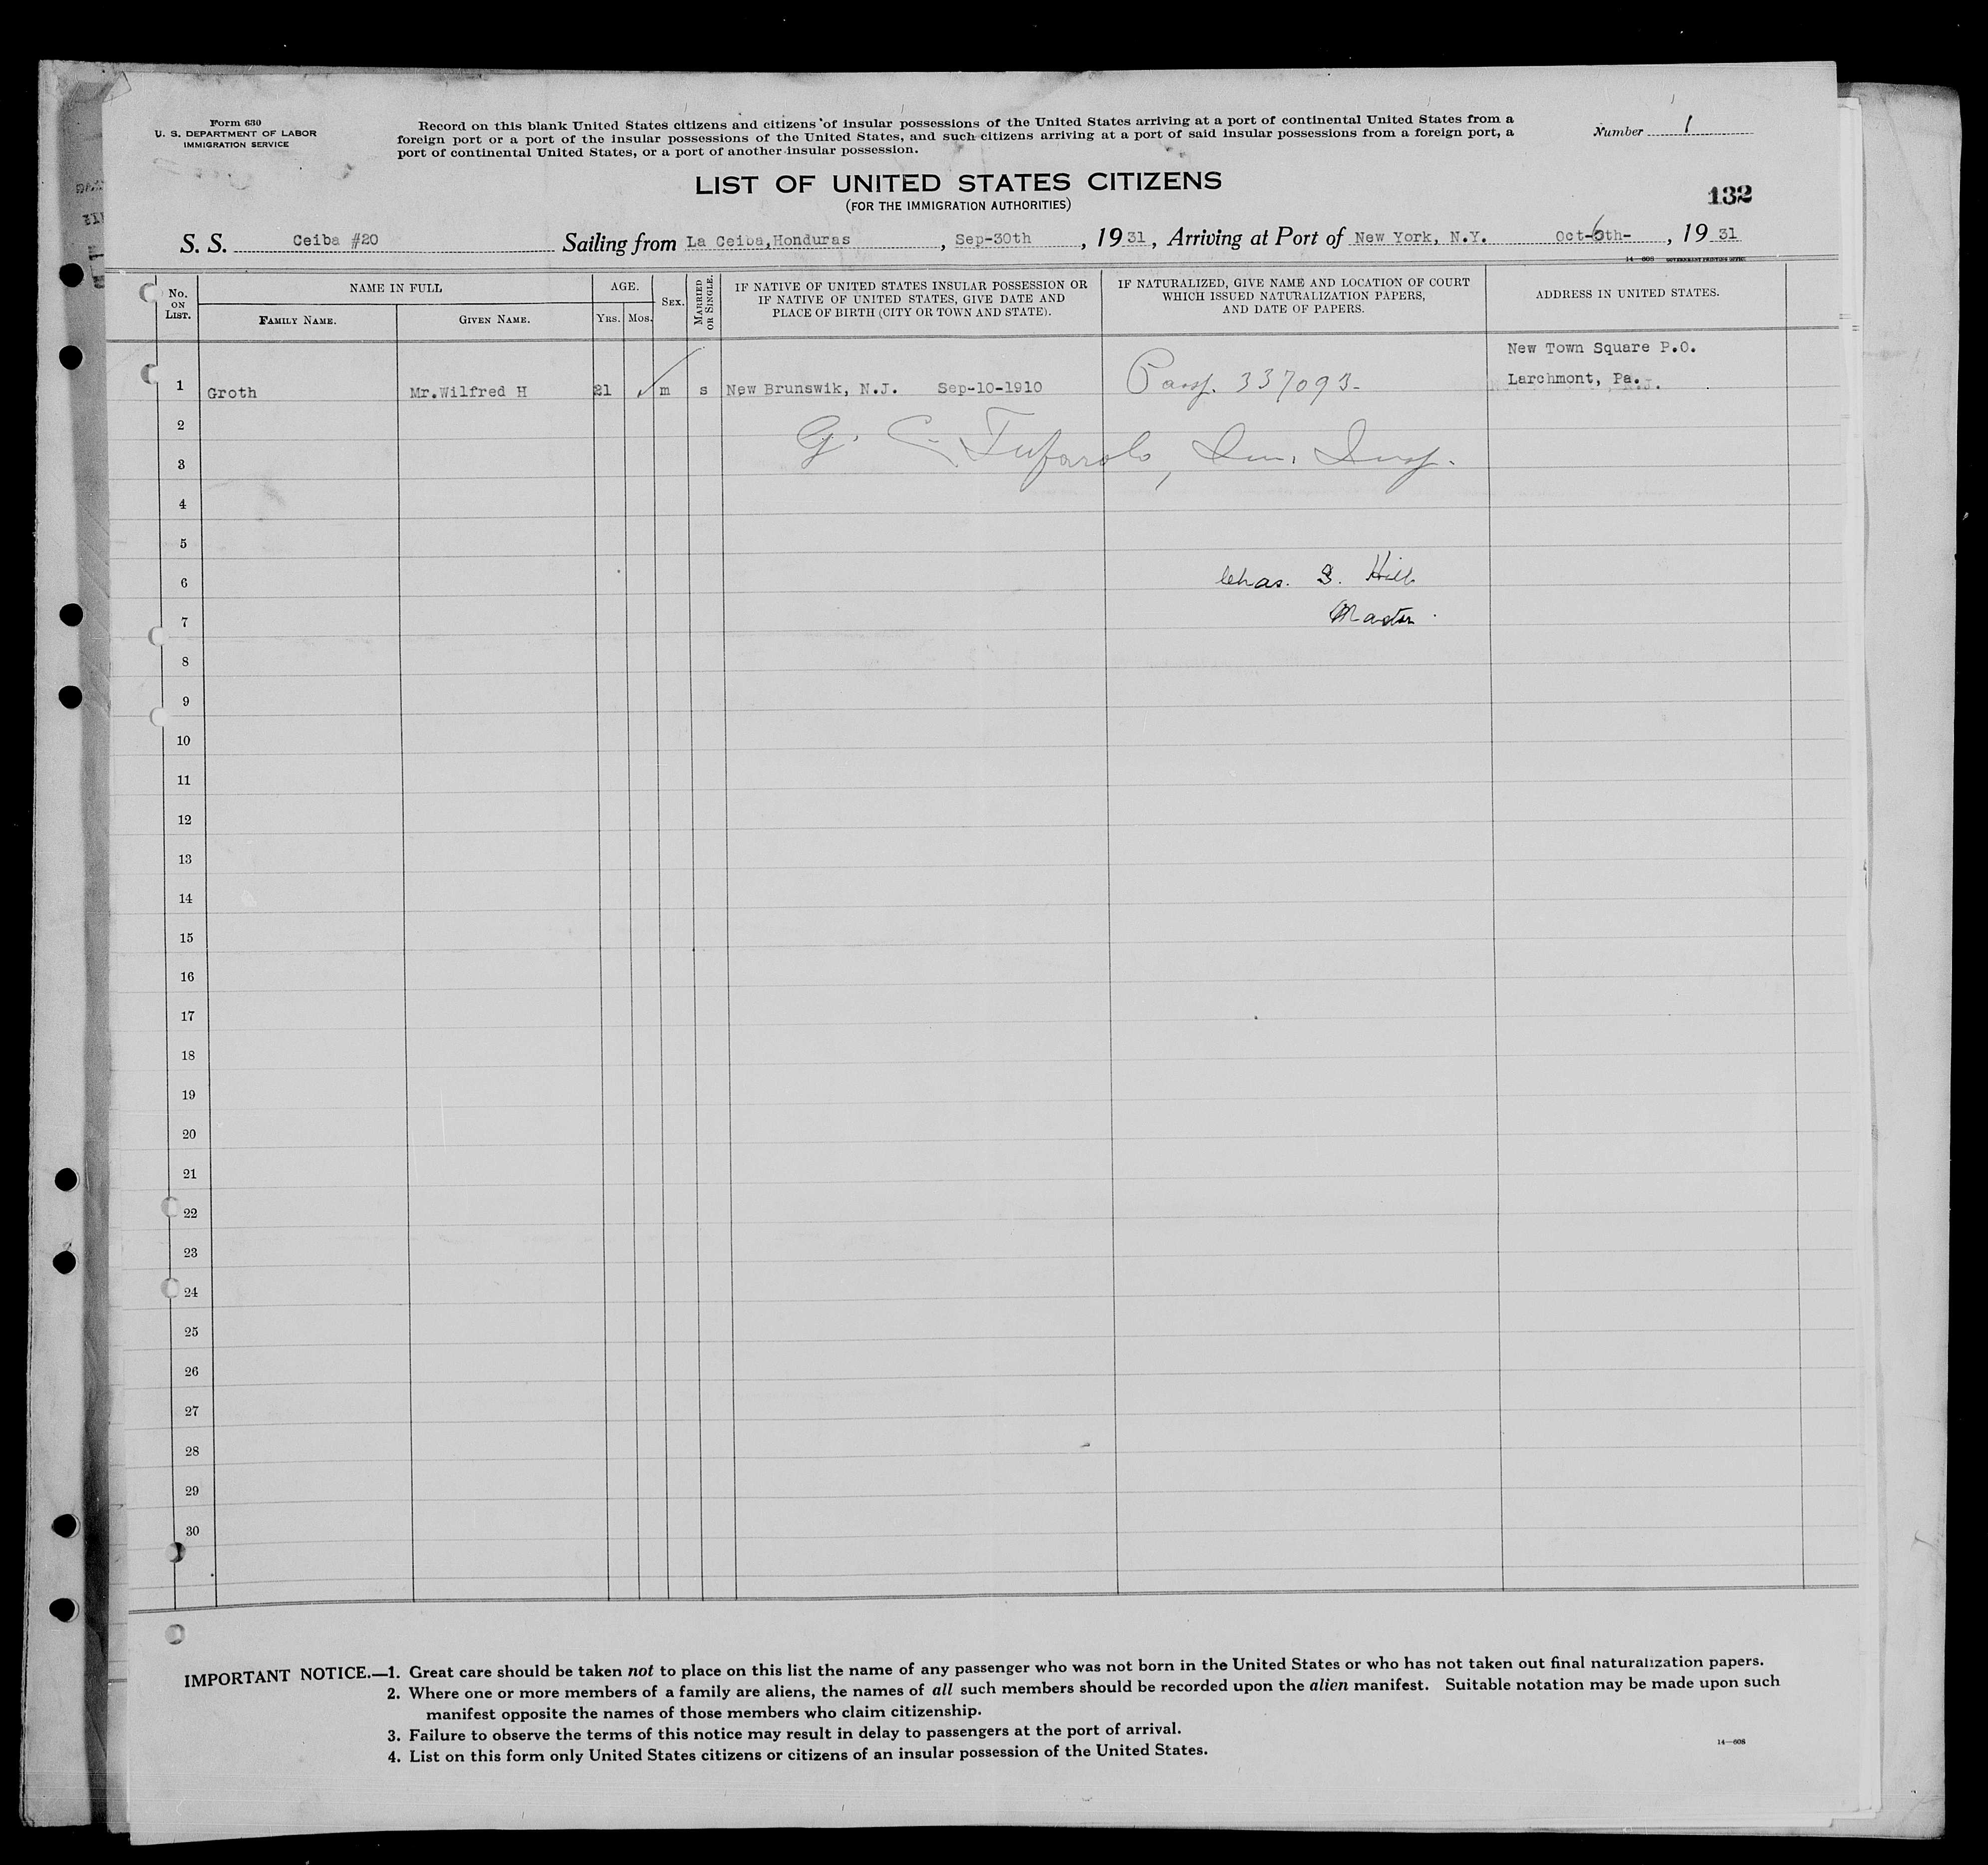 Form 630
U. S. DEPARTMENT OF LABOR
IMMIGRATION SERVICE
Record on this blank United States citizens and citizens of insular possessions of the United States arriving at a port of continental United States from a
foreign port or a port of the insular possessions of the United States, and such citizens arriving at a port of said insular possessions from a foreign port, a
port of continental United States, or a port of another insular possession.
Number 1
LIST OF UNITED STATES CITIZENS
(FOR THE IMMIGRATION AUTHORITIES)
132
S. S. Ceiba #20 Sailing from La Ceiba, Honduras, Sep-30th, 1931, Arriving at Port of New York, N.Y. Oct-6th-, 1931
14—608 GOVERNMENT PRINTING OFFICE
No. ON LIST.
NAME IN FULL
FAMILY NAME.
GIVEN NAME.
AGE.
YRS. MOS.
SEX.
MARRIED OR SINGLE.
IF NATIVE OF UNITED STATES INSULAR POSSESSION OR
IF NATIVE OF UNITED STATES, GIVE DATE AND
PLACE OF BIRTH (CITY OR TOWN AND STATE).
IF NATURALIZED, GIVE NAME AND LOCATION OF COURT
WHICH ISSUED NATURALIZATION PAPERS,
AND DATE OF PAPERS.
ADDRESS IN UNITED STATES.
New Town Square P.O.
1 Groth Mr.Wilfred H 21 m s New Brunswik, N.J. Sep-10-1910 Pass. 337093- Larchmont, Pa.
2
G. C. Tufarolo, Im. Insp.
3
4
5
6 Chas. S. Hill
7 Master
8
9
10
11
12
13
14
15
16
17
18
19
20
21
22
23
24
25
26
27
28
29
30
IMPORTANT NOTICE.—1. Great care should be taken not to place on this list the name of any passenger who was not born in the United States or who has not taken out final naturalization papers.
2. Where one or more members of a family are aliens, the names of all such members should be recorded upon the alien manifest. Suitable notation may be made upon such
manifest opposite the names of those members who claim citizenship.
3. Failure to observe the terms of this notice may result in delay to passengers at the port of arrival.
4. List on this form only United States citizens or citizens of an insular possession of the United States.
14—608